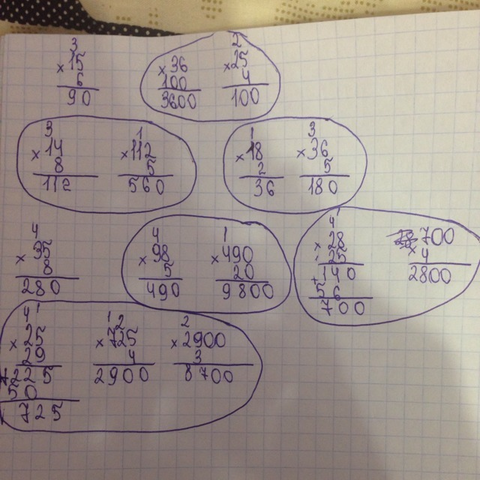 3
×15
6
90
×36
100
3600
2
×25
4
100
3
×14
8
112
1
×112
5
560
1
×18
2
36
3
×36
5
180
4
×35
8
280
4
×98
5
490
1
×490
20
9800
4 1
×28
25
1
+140
56
700
700
×4
2800
4 1
×25
29
225
50
725
1 2
×725
4
2900
2
×2900
3
8700